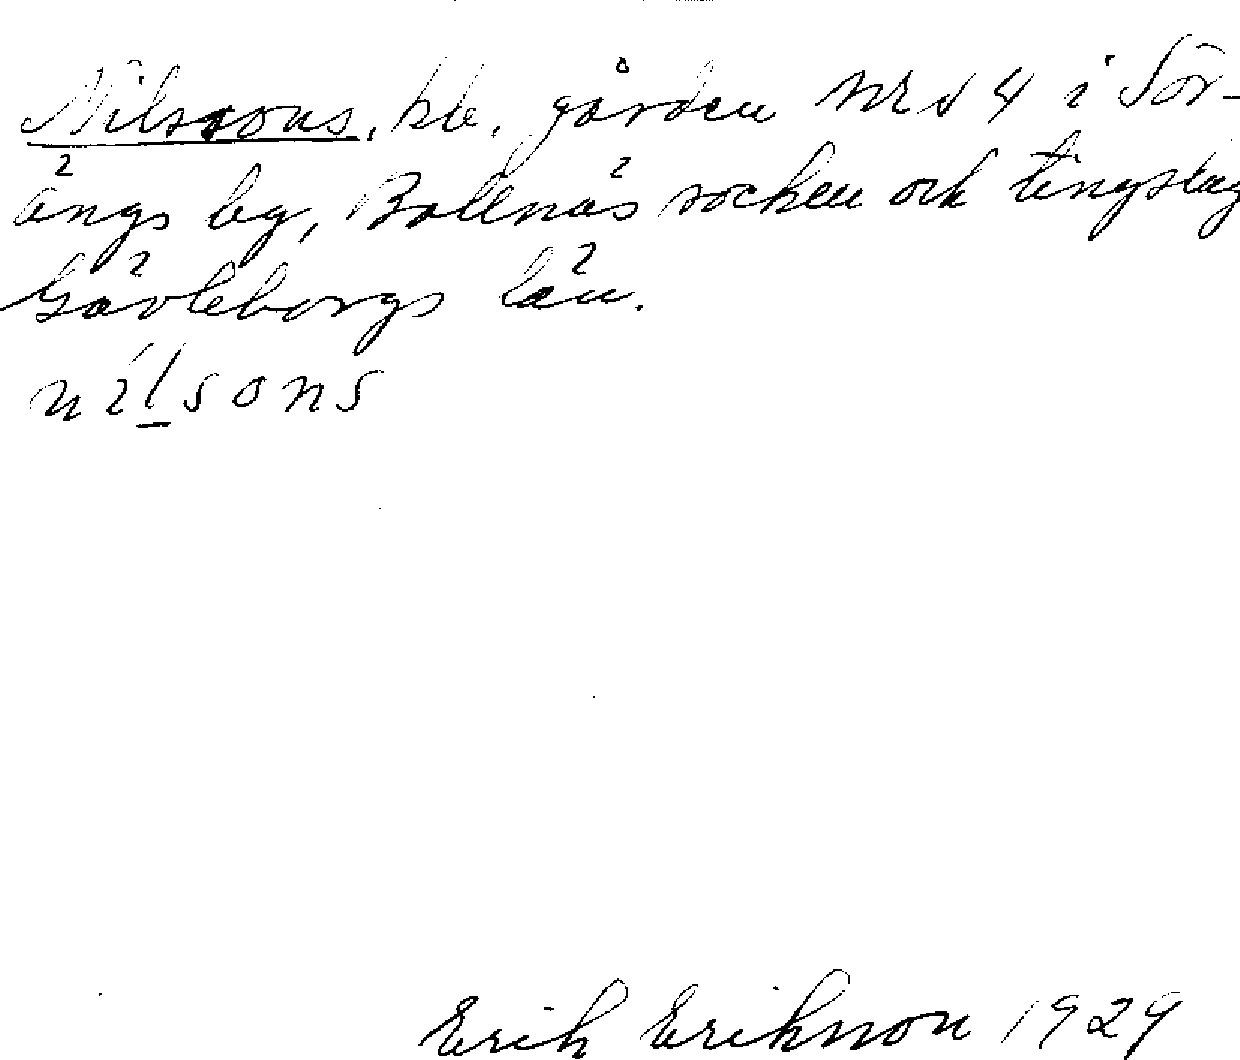 Nilssons, hb. gården nr s 4 i Sör-
ängs by, Bollnäs socken och tingslag
Gävleborgs län.
nilsons
Erik Erikson 1929